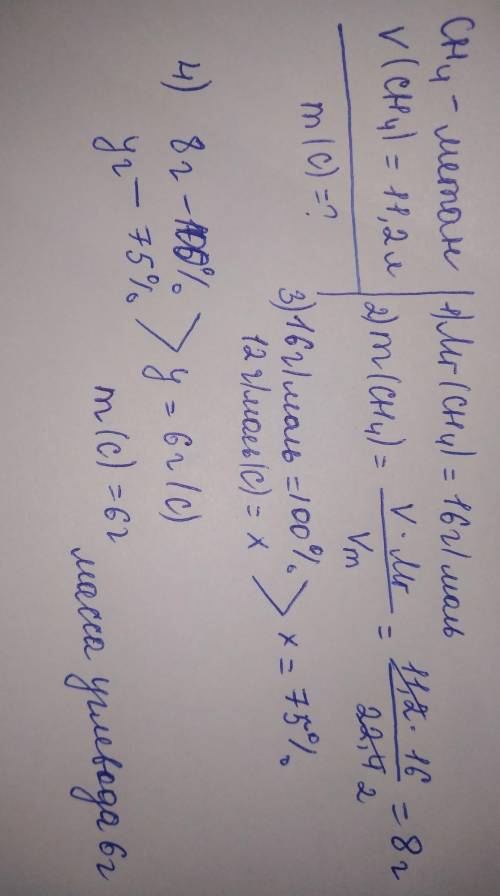 CH₄ - метан
V(CH₄) = 11,2 л
m(C) = ?
1) Mr(CH₄) = 16 г/моль
2) m(CH₄) = V · Mr / Vm = 11,2 · 16 / 22,4 2 = 8 г
3) 16 г/моль = 100%
12 г/моль(C) = x > x = 75%
4) 8 г - 100%
y г - 75% > y = 6 г (C)
m(C) = 6 г
масса углевода 6 г